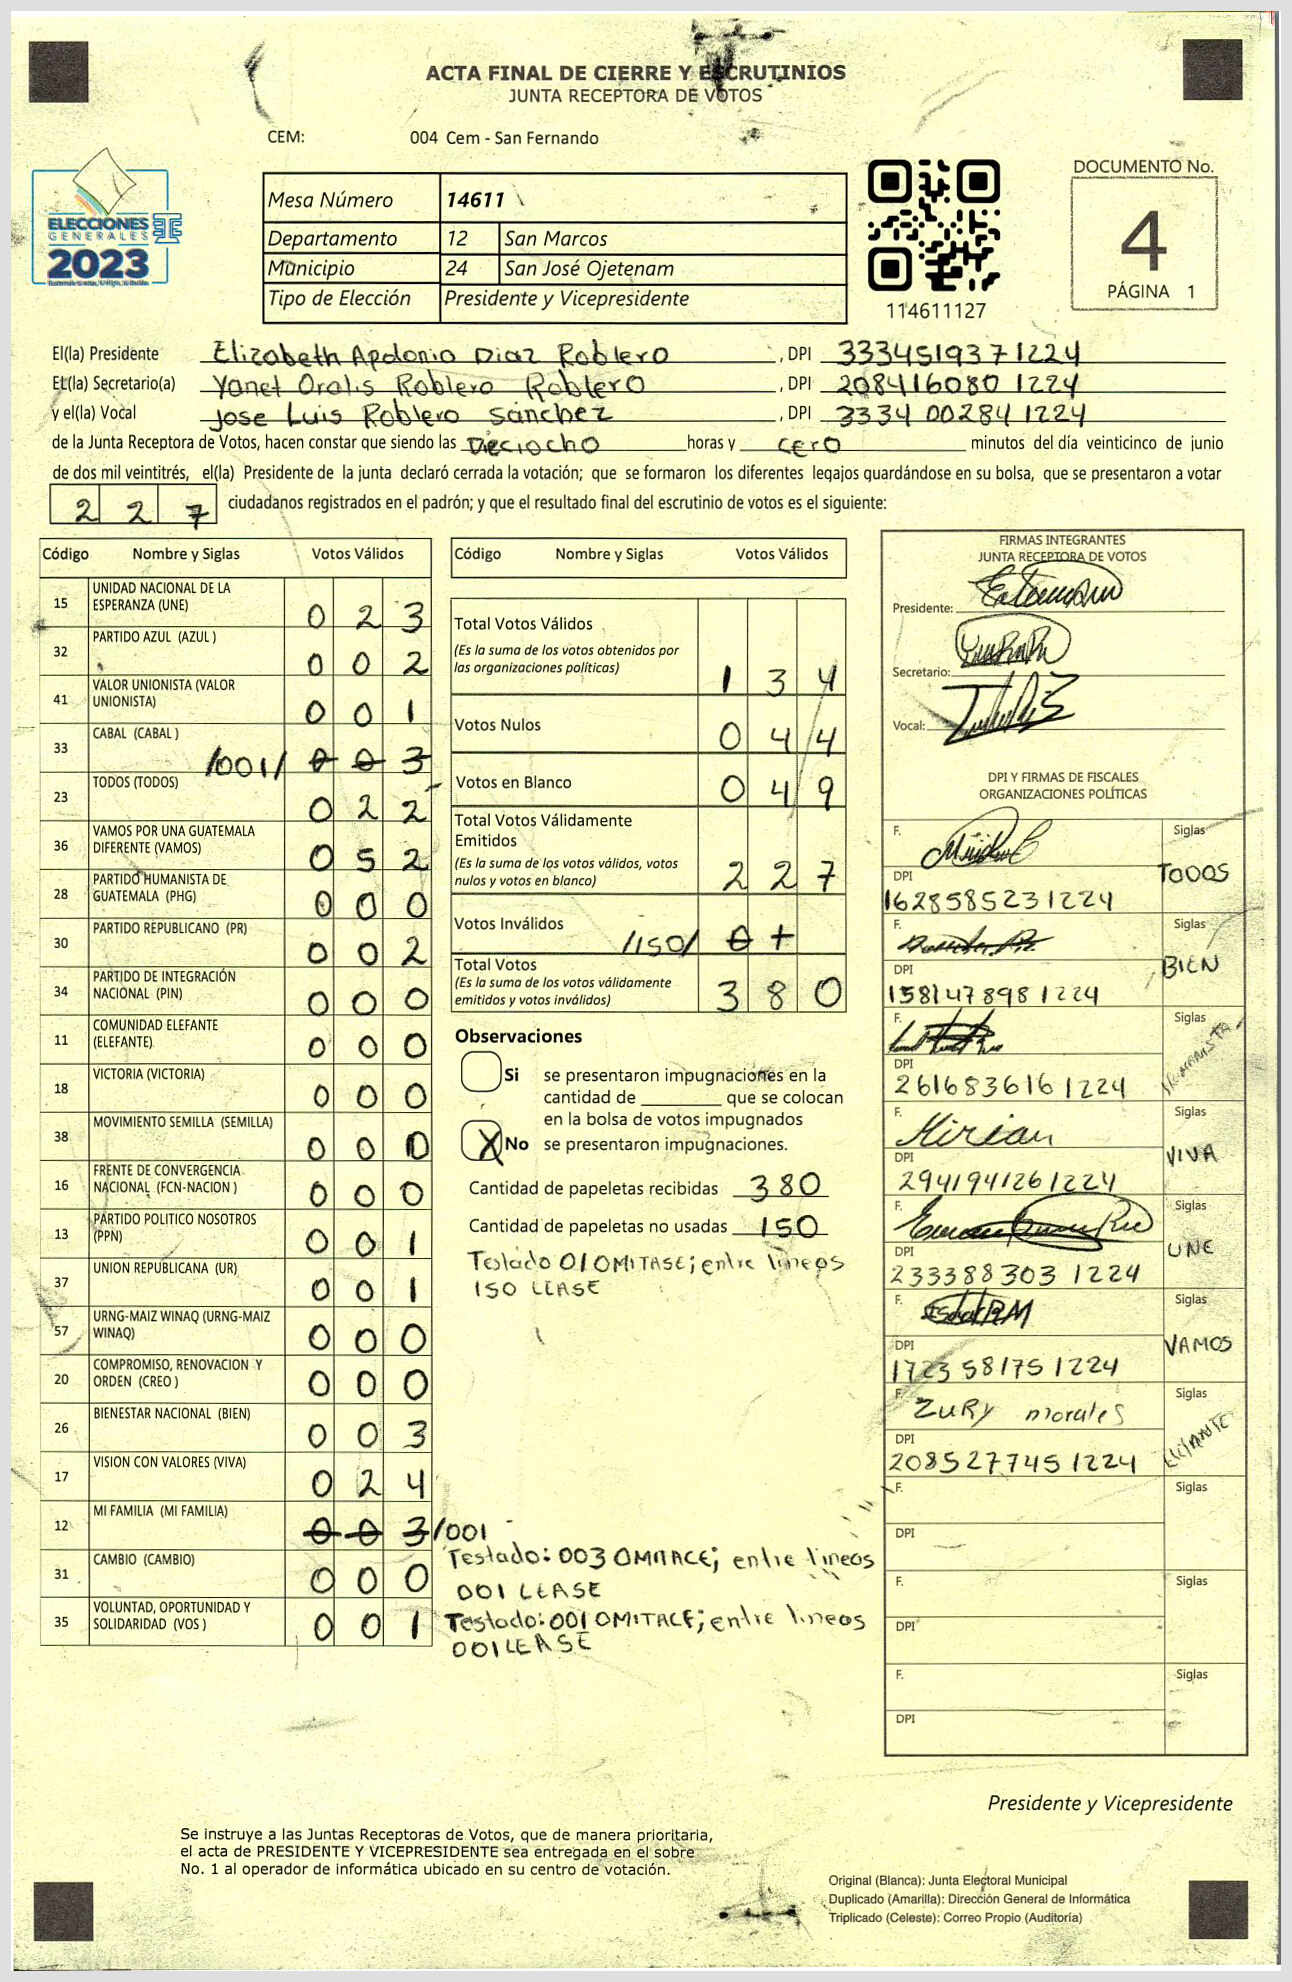 ACTA FINAL DE CIERRE Y ESCRUTINIOS
JUNTA RECEPTORA DE VOTOS
CEM: 004 Cem - San Fernando
ELECCIONES
GENERALES
2023
Mesa Número 14611
Departamento 12 San Marcos
Municipio 24 San José Ojetenam
Tipo de Elección Presidente y Vicepresidente
114611127
DOCUMENTO No.
4
PÁGINA 1
El(la) Presidente Elizabeth Apolonia Diaz Roblero , DPI 3334519371224
EL(la) Secretario(a) Yanet Oralis Roblero Roblero , DPI 2084160801224
y el(la) Vocal Jose Luis Roblero Sánchez , DPI 3334002841224
de la Junta Receptora de Votos, hacen constar que siendo las Dieciocho horas y cero minutos del día veinticinco de junio
de dos mil veintitrés, el(la) Presidente de la junta declaró cerrada la votación; que se formaron los diferentes legajos guardándose en su bolsa, que se presentaron a votar
2 2 7 ciudadanos registrados en el padrón; y que el resultado final del escrutinio de votos es el siguiente:
Código Nombre y Siglas Votos Válidos
15 UNIDAD NACIONAL DE LA ESPERANZA (UNE) 0 2 3
32 PARTIDO AZUL (AZUL ) 0 0 2
41 VALOR UNIONISTA (VALOR UNIONISTA) 0 0 1
33 CABAL (CABAL ) /001/ 0 0 3
23 TODOS (TODOS) 0 2 2
36 VAMOS POR UNA GUATEMALA DIFERENTE (VAMOS) 0 5 2
28 PARTIDO HUMANISTA DE GUATEMALA (PHG) 0 0 0
30 PARTIDO REPUBLICANO (PR) 0 0 2
34 PARTIDO DE INTEGRACIÓN NACIONAL (PIN) 0 0 0
11 COMUNIDAD ELEFANTE (ELEFANTE) 0 0 0
18 VICTORIA (VICTORIA) 0 0 0
38 MOVIMIENTO SEMILLA (SEMILLA) 0 0 0
16 FRENTE DE CONVERGENCIA NACIONAL (FCN-NACION ) 0 0 0
13 PARTIDO POLITICO NOSOTROS (PPN) 0 0 1
37 UNION REPUBLICANA (UR) 0 0 1
57 URNG-MAIZ WINAQ (URNG-MAIZ WINAQ) 0 0 0
20 COMPROMISO, RENOVACION Y ORDEN (CREO ) 0 0 0
26 BIENESTAR NACIONAL (BIEN) 0 0 3
17 VISION CON VALORES (VIVA) 0 2 4
12 MI FAMILIA (MI FAMILIA) 0 0 3 /001
31 CAMBIO (CAMBIO) 0 0 0
35 VOLUNTAD, OPORTUNIDAD Y SOLIDARIDAD (VOS ) 0 0 1
Testado: 003 OMITACE; entre lineos
001 LEASE
Testado: 001 OMITACE; entre lineos
001 LEASE
Código Nombre y Siglas Votos Válidos
Total Votos Válidos
(Es la suma de los votos obtenidos por
las organizaciones políticas) 1 3 4
Votos Nulos 0 4 4
Votos en Blanco 0 4 9
Total Votos Válidamente
Emitidos
(Es la suma de los votos válidos, votos
nulos y votos en blanco) 2 2 7
Votos Inválidos /150/ 0 1
Total Votos
(Es la suma de los votos válidamente
emitidos y votos inválidos) 3 8 0
Observaciones
Si se presentaron impugnaciones en la
cantidad de ________ que se colocan
en la bolsa de votos impugnados
X No se presentaron impugnaciones.
Cantidad de papeletas recibidas 380
Cantidad de papeletas no usadas 150
Testado 01 OMITASE; entre lineos
150 LEASE
FIRMAS INTEGRANTES
JUNTA RECEPTORA DE VOTOS
Presidente:
Secretario:
Vocal:
DPI Y FIRMAS DE FISCALES
ORGANIZACIONES POLÍTICAS
F. Siglas TODOS
DPI 1628585231224
F. Siglas BIEN
DPI 1581478981224
F. Siglas
DPI 2616836161224
F. Mirian Siglas VIVA
DPI 2941941261224
F. Siglas UNE
DPI 2333883031224
F. Siglas VAMOS
DPI 1723581751224
F. Zury morales Siglas
DPI 2085277451224
F. Siglas
DPI
F. Siglas
DPI
F. Siglas
DPI
Presidente y Vicepresidente
Se instruye a las Juntas Receptoras de Votos, que de manera prioritaria,
el acta de PRESIDENTE Y VICEPRESIDENTE sea entregada en el sobre
No. 1 al operador de informática ubicado en su centro de votación.
Original (Blanca): Junta Electoral Municipal
Duplicado (Amarilla): Dirección General de Informática
Triplicado (Celeste): Correo Propio (Auditoría)